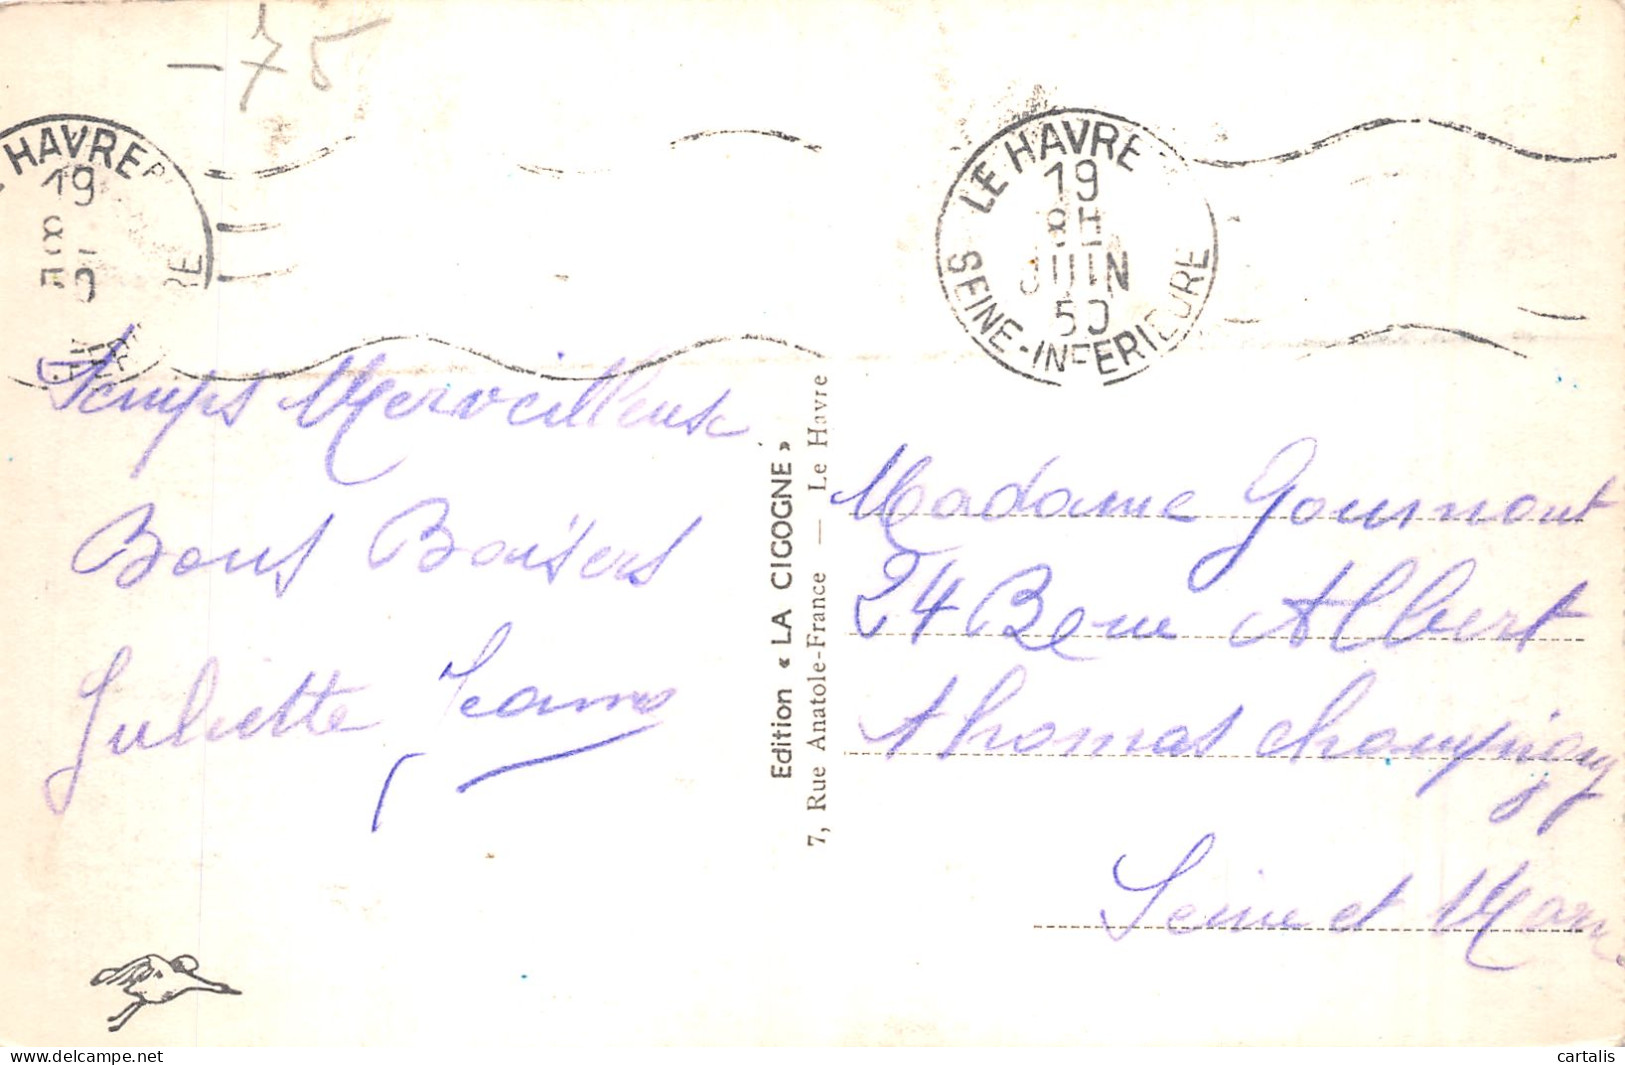 - 75
HAVRE
19
8
LE HAVRE
19
8H
JUIN
50
SEINE-INFERIEURE
Temps Merveilleux
Bons Baisers
Juliette Jeanne
Edition « LA CIGOGNE »
7, Rue Anatole-France — Le Havre
Madame Gournont
24 Beau Albert
Thomas Champigny
Seine et Marne
Postcards > France >
cartalis